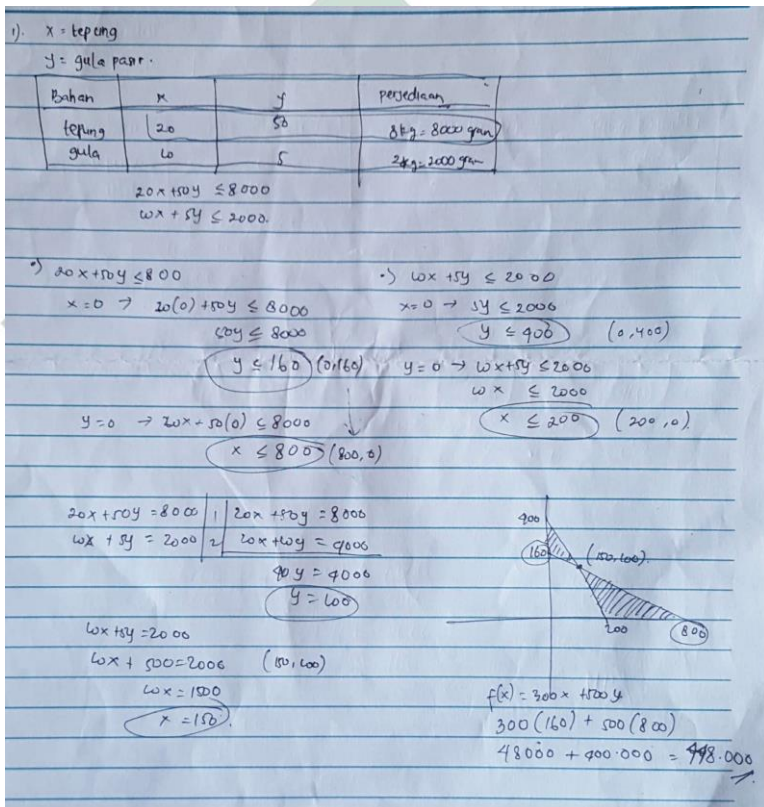 1). x = tepung
y = gula pasir.
Bahan x y persediaan
tepung 20 50 8kg = 8000 gram
gula 10 5 2kg = 2000 gram
20x + 50y ≤ 8000
10x + 5y ≤ 2000.
•) 20x + 50y ≤ 800
x = 0 → 20(0) + 50y ≤ 8000
50y ≤ 8000
y ≤ 160 (0,160)
y = 0 → 20x + 50(0) ≤ 8000
x ≤ 800 (800,0)
•) 10x + 5y ≤ 2000
x = 0 → 5y ≤ 2000
y ≤ 400 (0,400)
y = 0 → 10x + 5y ≤ 2000
10x ≤ 2000
x ≤ 200 (200,0).
20x + 50y = 8000 | 1 | 20x + 50y = 8000
10x + 5y = 2000 | 2 | 20x + 10y = 4000
40y = 4000
y = 100
10x + 5y = 2000
10x + 500 = 2000 (150,100)
10x = 1500
x = 150.
400
160 (150,100).
200 800
f(x) = 300x + 500y
300(160) + 500(800)
48000 + 400.000 = 448.000